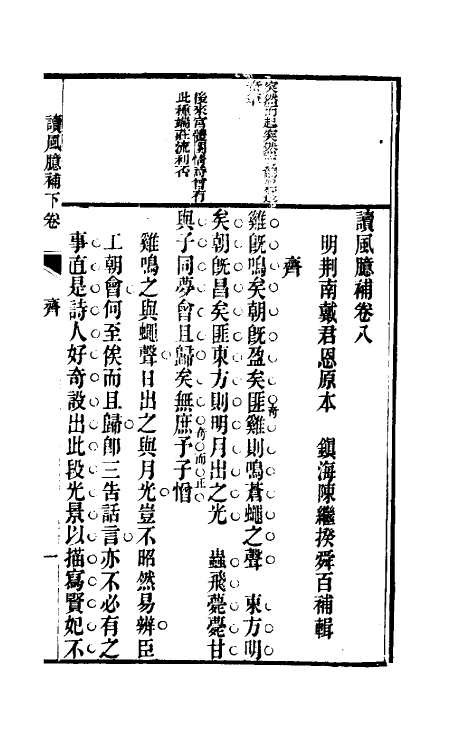 讀風臆補卷八
明荆南戴君恩原本 鎮海陳繼揆舜百補輯
齊
雞旣鳴矣朝旣盈矣匪雞則鳴蒼蠅之聲 東方明
矣朝旣昌矣匪東方則明月出之光 蟲飛薨薨甘
與子同夢會且歸矣無庶予子憎
雞鳴之與蠅聲日出之與月光豈不昭然易辨臣
工朝會何至俟而且歸卽三告話言亦不必有之
事直是詩人好奇設出此段光景以描寫賢妃不
奇
奇而正
突然而起突然
後來宮體閨情詩曾有
此種端莊流利否
讀風臆補下卷
齊
一